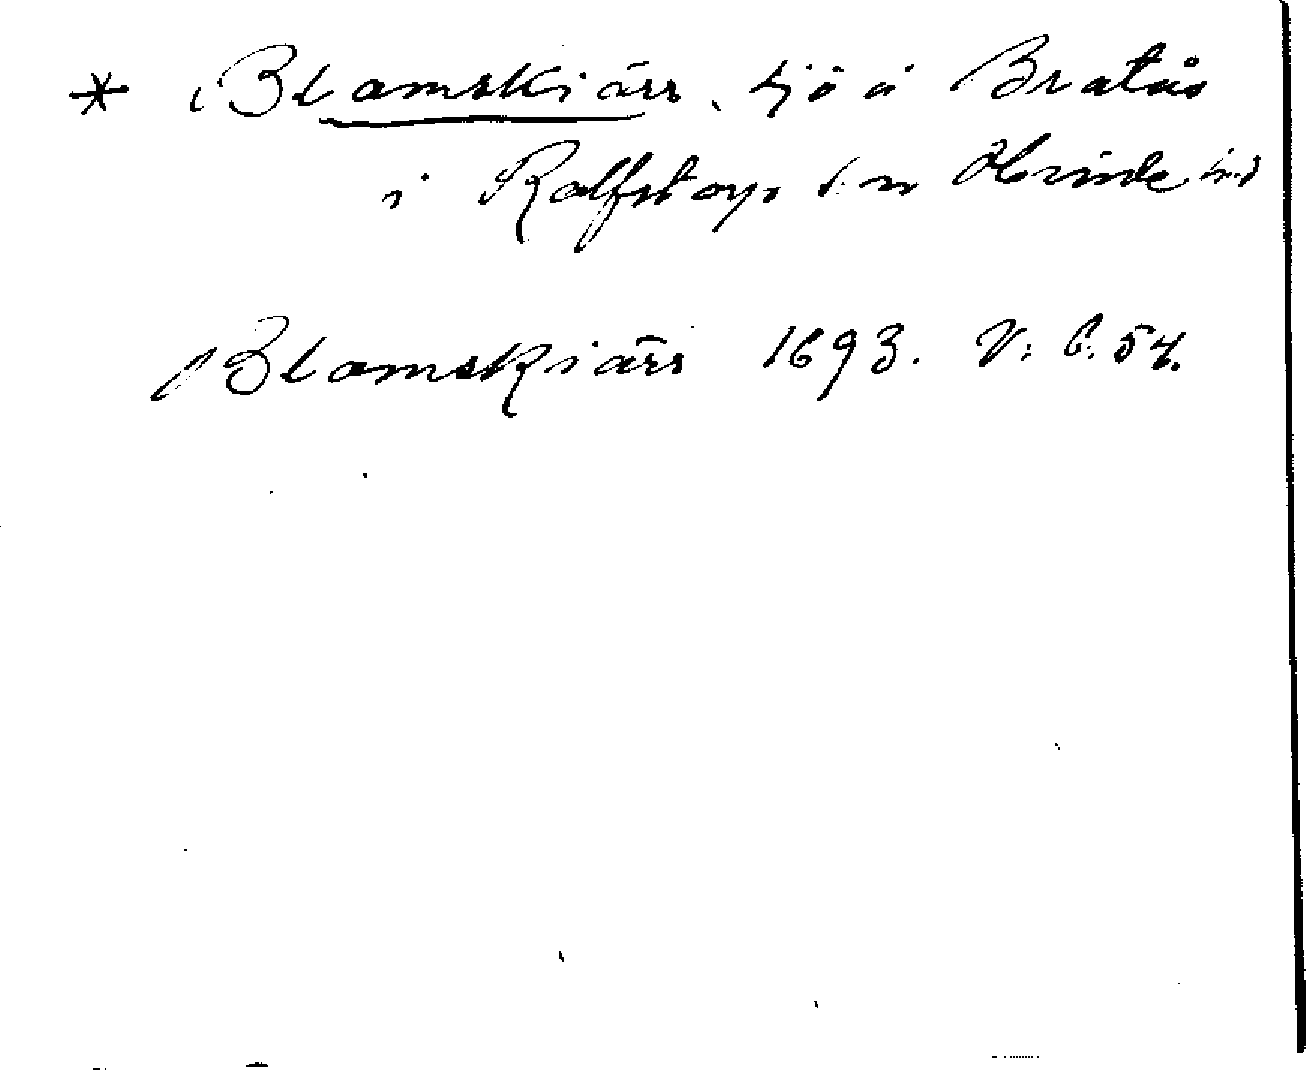 * Blamskiärr, sjö i Bratås
i Rolfstorps sn Himle hd
Blamskiärr 1693. V: C. 54.